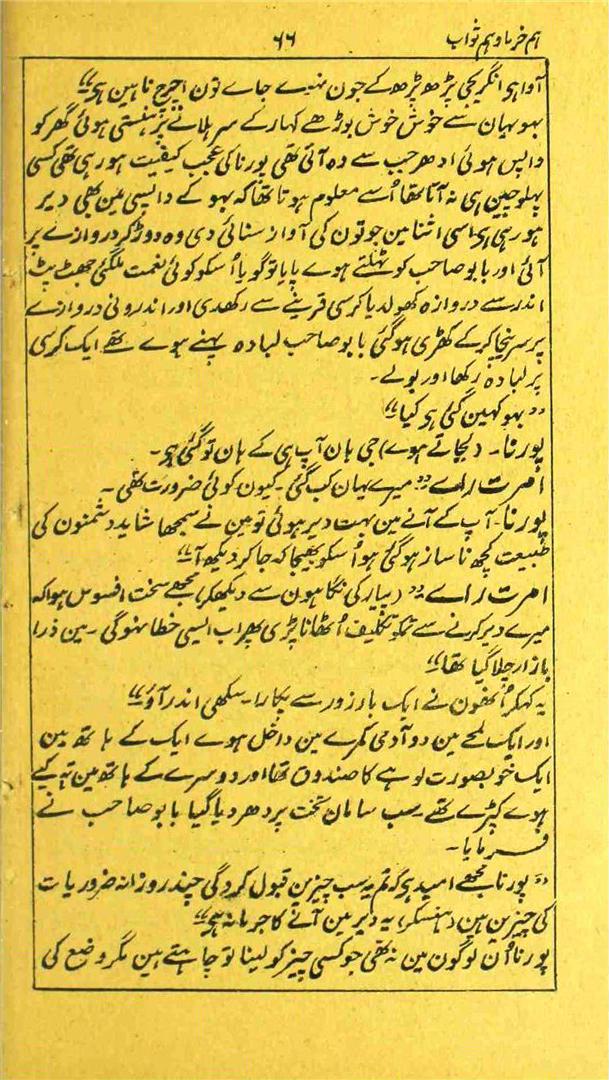 ہم خرما و ہم ثواب ۶۶
آواہی انگریجی پڑھ پڑھ کے جون نہہے جاے تون اچرج ناہین ہی“
بہو یہان سے خوش خوش بوڑھے کہار کے سر ہلانے پر ہنستی ہوئی گھر کو
واپس ہوئی ادھر جب سے وہ آئی تھی پورنا کی عجب کیفیت ہو رہی تھی کسی
پہلو چین ہی نہ آتا تھا اُسے معلوم ہوتا تھا کہ بہو کے واپسی مین بھی دیر
ہو رہی ہی اسی اثنا مین جوتون کی آواز سنائی دی وہ دوڑ کر دروازے پر
آئی اور بابو صاحب کو ٹہلتے ہوے پایا تو گویا اُسکو کوئی نعمت ملگئی جھٹ پٹ
اندر سے دروازہ کھولدیا کرسی قرینے سے رکھدی اور اندرونی دروازے
پر سر نیچا کر کے کھڑی ہوگئی بابو صاحب لبادہ پہنے ہوے تھے ایک کرسی
پر لبادہ رکھا اور بولے۔
”بہو کہین گئی ہی کیا“
پورنا۔ (لجاتے ہوے) جی ہان آپ ہی کے ہان تو گئی ہی۔
امرت راے ”میرے یہان کب گئی۔ کیون کوئی ضرورت تھی۔
پورنا۔ آپ کے آنے مین بہت دیر ہوئی تو مین نے سمجھا شاید دشمنون کی
طبیعت کچھ ناساز ہوگئی ہو اُسکو بھیجا کہ جا کر دیکھ آ“
امرت راے ”(پیار کی نگاہون سے دیکھکر) مجھے سخت افسوس ہوا کہ
میرے دیر کرنے سے تمکو تکلیف اُٹھانا پڑی پھر اب ایسی خطا نہوگی۔ مین ذرا
بازار چلا گیا تھا“
یہ کہکر اُنھون نے ایک بار زور سے پکارا۔ سکھی اندر آؤ“
اور ایک لمحے مین دو آدمی کمرے مین داخل ہوے ایک کے ہاتھ مین
ایک خوبصورت لوہے کا صندوق تھا اور دوسرے کے ہاتھ مین تہ کیے
ہوے کپڑے تھے۔ سب سامان تخت پر دھر دیا گیا بابو صاحب نے
فرمایا۔
”پورنا مجھے امید ہی کہ تم یہ سب چیزین قبول کروگی چند روزانہ ضروریات
کی چیزین ہین (ہنسکر) یہ دیر مین آنے کا جرمانہ ہی“
پورنا اُن لوگون مین نہ تھی جو کسی چیز کو لینا تو چاہتے ہین مگر وضع کی